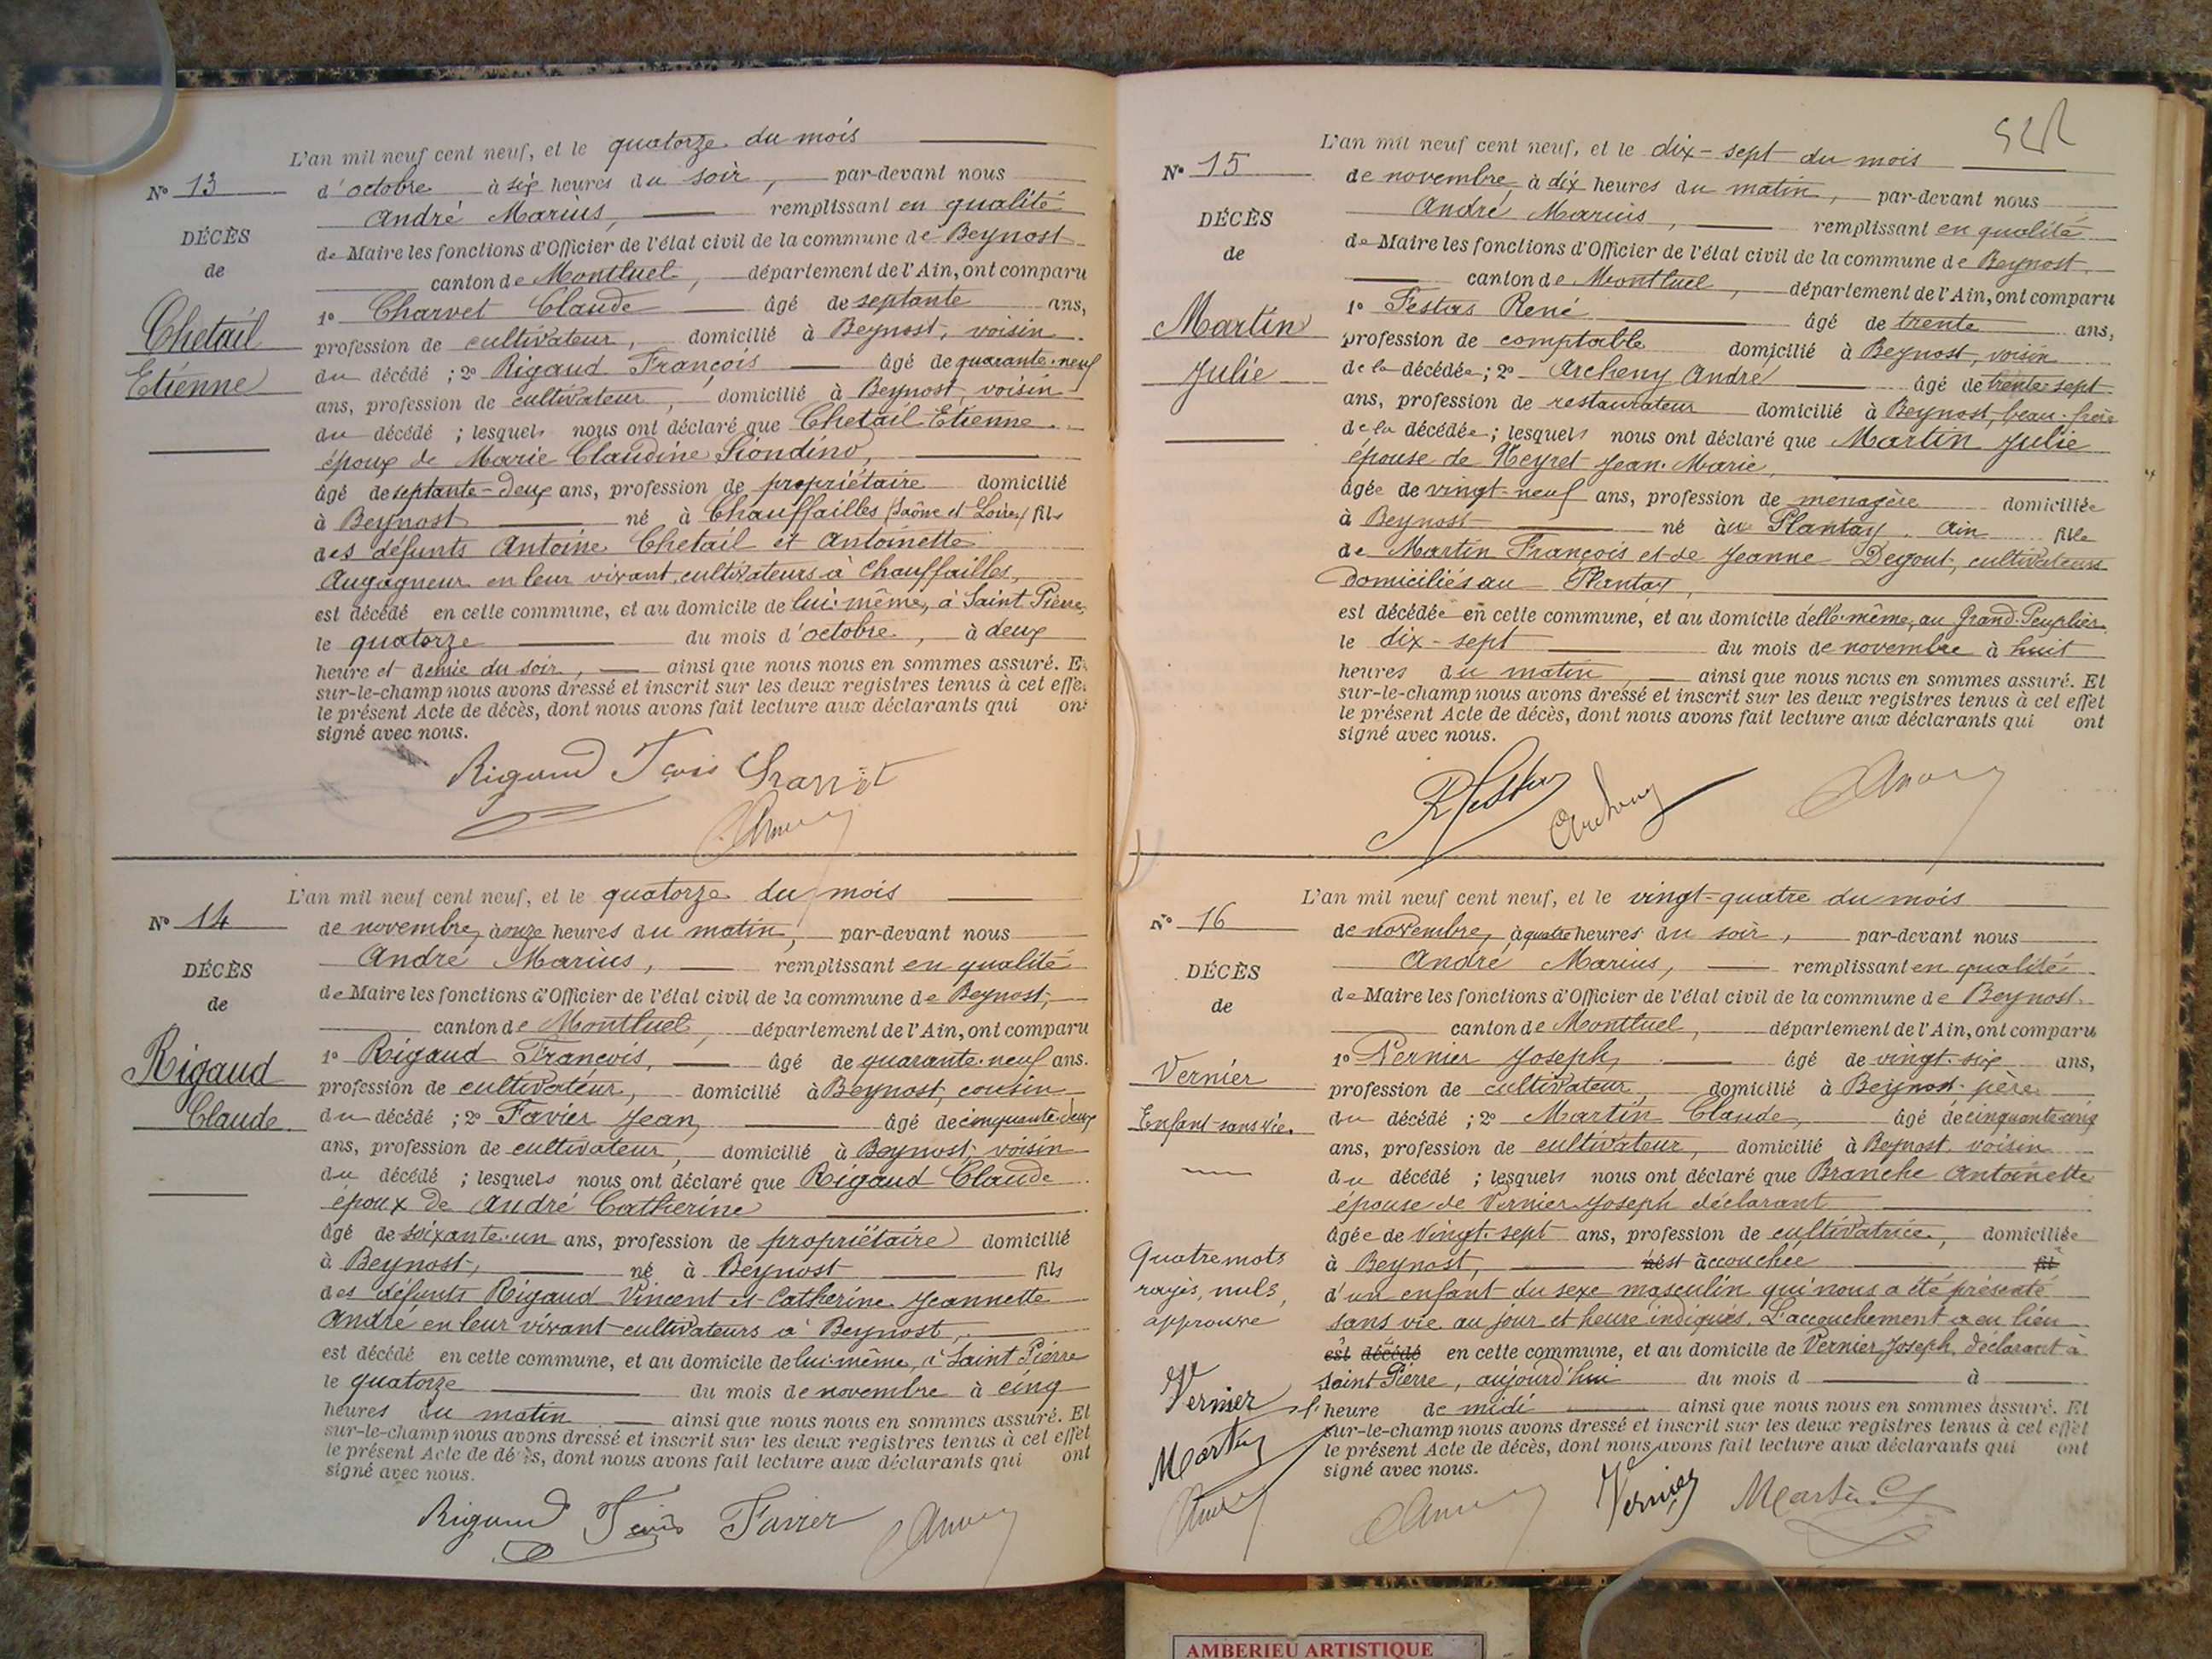 L'an mil neuf cent neuf, et le quatorze du mois
N° 13
d'octobre à six heures du soir, par-devant nous
André Marius, remplissant en qualité
DÉCÈS
de Maire les fonctions d'Officier de l'état civil de la commune de Beynost
de
canton de Montluel, département de l'Ain, ont comparu
1° Charvet Claude âgé de septante ans,
Chetail
profession de cultivateur, domicilié à Beynost, voisin
du décédé ; 2° Rigaud François âgé de quarante-neuf
Etienne
ans, profession de cultivateur, domicilié à Beynost, voisin
du décédé ; lesquels nous ont déclaré que Chetail Etienne
époux de Marie Claudine
âgé de septante-deux ans, profession de propriétaire domicilié
à Beynost né à Chauffailles (Saône et Loire) fils
des défunts Antoine Chetail et Antoinette
Augagneur en leur vivant cultivateurs à Chauffailles,
est décédé en cette commune, et au domicile de lui-même, à Saint Pierre,
le quatorze du mois d'octobre, à deux
heure et demie du soir, ainsi que nous nous en sommes assuré. E
sur-le-champ nous avons dressé et inscrit sur les deux registres tenus à cet effe
le présent Acte de décès, dont nous avons fait lecture aux déclarants qui on
signé avec nous.
Rigaud Fçois Charvet
L'an mil neuf cent neuf, et le quatorze du mois
N° 14
de novembre, à onze heures du matin, par-devant nous
André Marius, remplissant en qualité
DÉCÈS
de Maire les fonctions d'Officier de l'état civil de la commune de Beynost,
de
canton de Montluel, département de l'Ain, ont comparu
1° Rigaud François, âgé de quarante-neuf ans.
Rigaud
profession de cultivateur, domicilié à Beynost, cousin
Claude.
du décédé ; 2° Favier Jean, âgé de cinquante-deux
ans, profession de cultivateur, domicilié à Beynost, voisin
du décédé ; lesquels nous ont déclaré que Rigaud Claude
époux de André Catherine
âgé de soixante-un ans, profession de propriétaire domicilié
à Beynost, né à Beynost fils
des défunts Rigaud Vincent et Catherine Jeannette
André en leur vivant cultivateurs à Beynost,
est décédé en cette commune, et au domicile de lui-même, à Saint Pierre
le quatorze du mois de novembre à cinq
heures du matin ainsi que nous nous en sommes assuré. Et
sur-le-champ nous avons dressé et inscrit sur les deux registres tenus à cet effet
le présent Acte de décès, dont nous avons fait lecture aux déclarants qui ont
signé avec nous.
Rigaud Fçois Favier
L'an mil neuf cent neuf, et le dix-sept du mois
N° 15
de novembre, à dix heures du matin, par-devant nous
André Marius, remplissant en qualité
DÉCÈS
de Maire les fonctions d'Officier de l'état civil de la commune de Beynost
de
canton de Montluel, département de l'Ain, ont comparu
1° Festas René âgé de trente ans,
Martin
profession de comptable domicilié à Beynost, voisin
Julie
de la décédée ; 2° Archeny André âgé de trente-sept
ans, profession de restaurateur domicilié à Beynost, beau-frère
de la décédée ; lesquels nous ont déclaré que Martin Julie
épouse de Neyret Jean-Marie,
âgée de vingt-neuf ans, profession de ménagère domiciliée
à Beynost né au Plantay. Ain fille
de Martin François et de Jeanne Degout, cultivateurs
domiciliés au Plantay,
est décédée en cette commune, et au domicile d'elle-même, au Grand-Peuplier.
le dix-sept du mois de novembre à huit
heures du matin, ainsi que nous nous en sommes assuré. Et
sur-le-champ nous avons dressé et inscrit sur les deux registres tenus à cet effet
le présent Acte de décès, dont nous avons fait lecture aux déclarants qui ont
signé avec nous.
L'an mil neuf cent neuf, et le vingt-quatre du mois
N° 16
de novembre, à quatre heures du soir, par-devant nous
André Marius, remplissant en qualité
DÉCÈS
de Maire les fonctions d'Officier de l'état civil de la commune de Beynost.
de
canton de Montluel, département de l'Ain, ont comparu
1° Vernier Joseph, âgé de vingt-six ans,
Vernier
profession de cultivateur, domicilié à Beynost, père
Enfant sans vie.
du décédé ; 2° Martin Claude, âgé de cinquante-cinq
ans, profession de cultivateur, domicilié à Beynost, voisin
du décédé ; lesquels nous ont déclaré que Branche Antoinette
épouse de Vernier Joseph déclarant
âgée de vingt-sept ans, profession de cultivatrice, domiciliée
à Beynost, est accouchée fil
Quatre mots
d'un enfant du sexe masculin qui nous a été présenté
rayés, nuls,
sans vie au jour et heure indiqués. L'accouchement a eu lieu
approuvé
est décédé en cette commune, et au domicile de Vernier Joseph, déclarant à
Saint Pierre, aujourd'hui du mois d à
Vernier
l'heure de midi ainsi que nous nous en sommes assuré. Et
sur-le-champ nous avons dressé et inscrit sur les deux registres tenus à cet effet
Martin
le présent Acte de décès, dont nous avons fait lecture aux déclarants qui ont
signé avec nous.
Vernier Martin C
AMBERIEU ARTISTIQUE